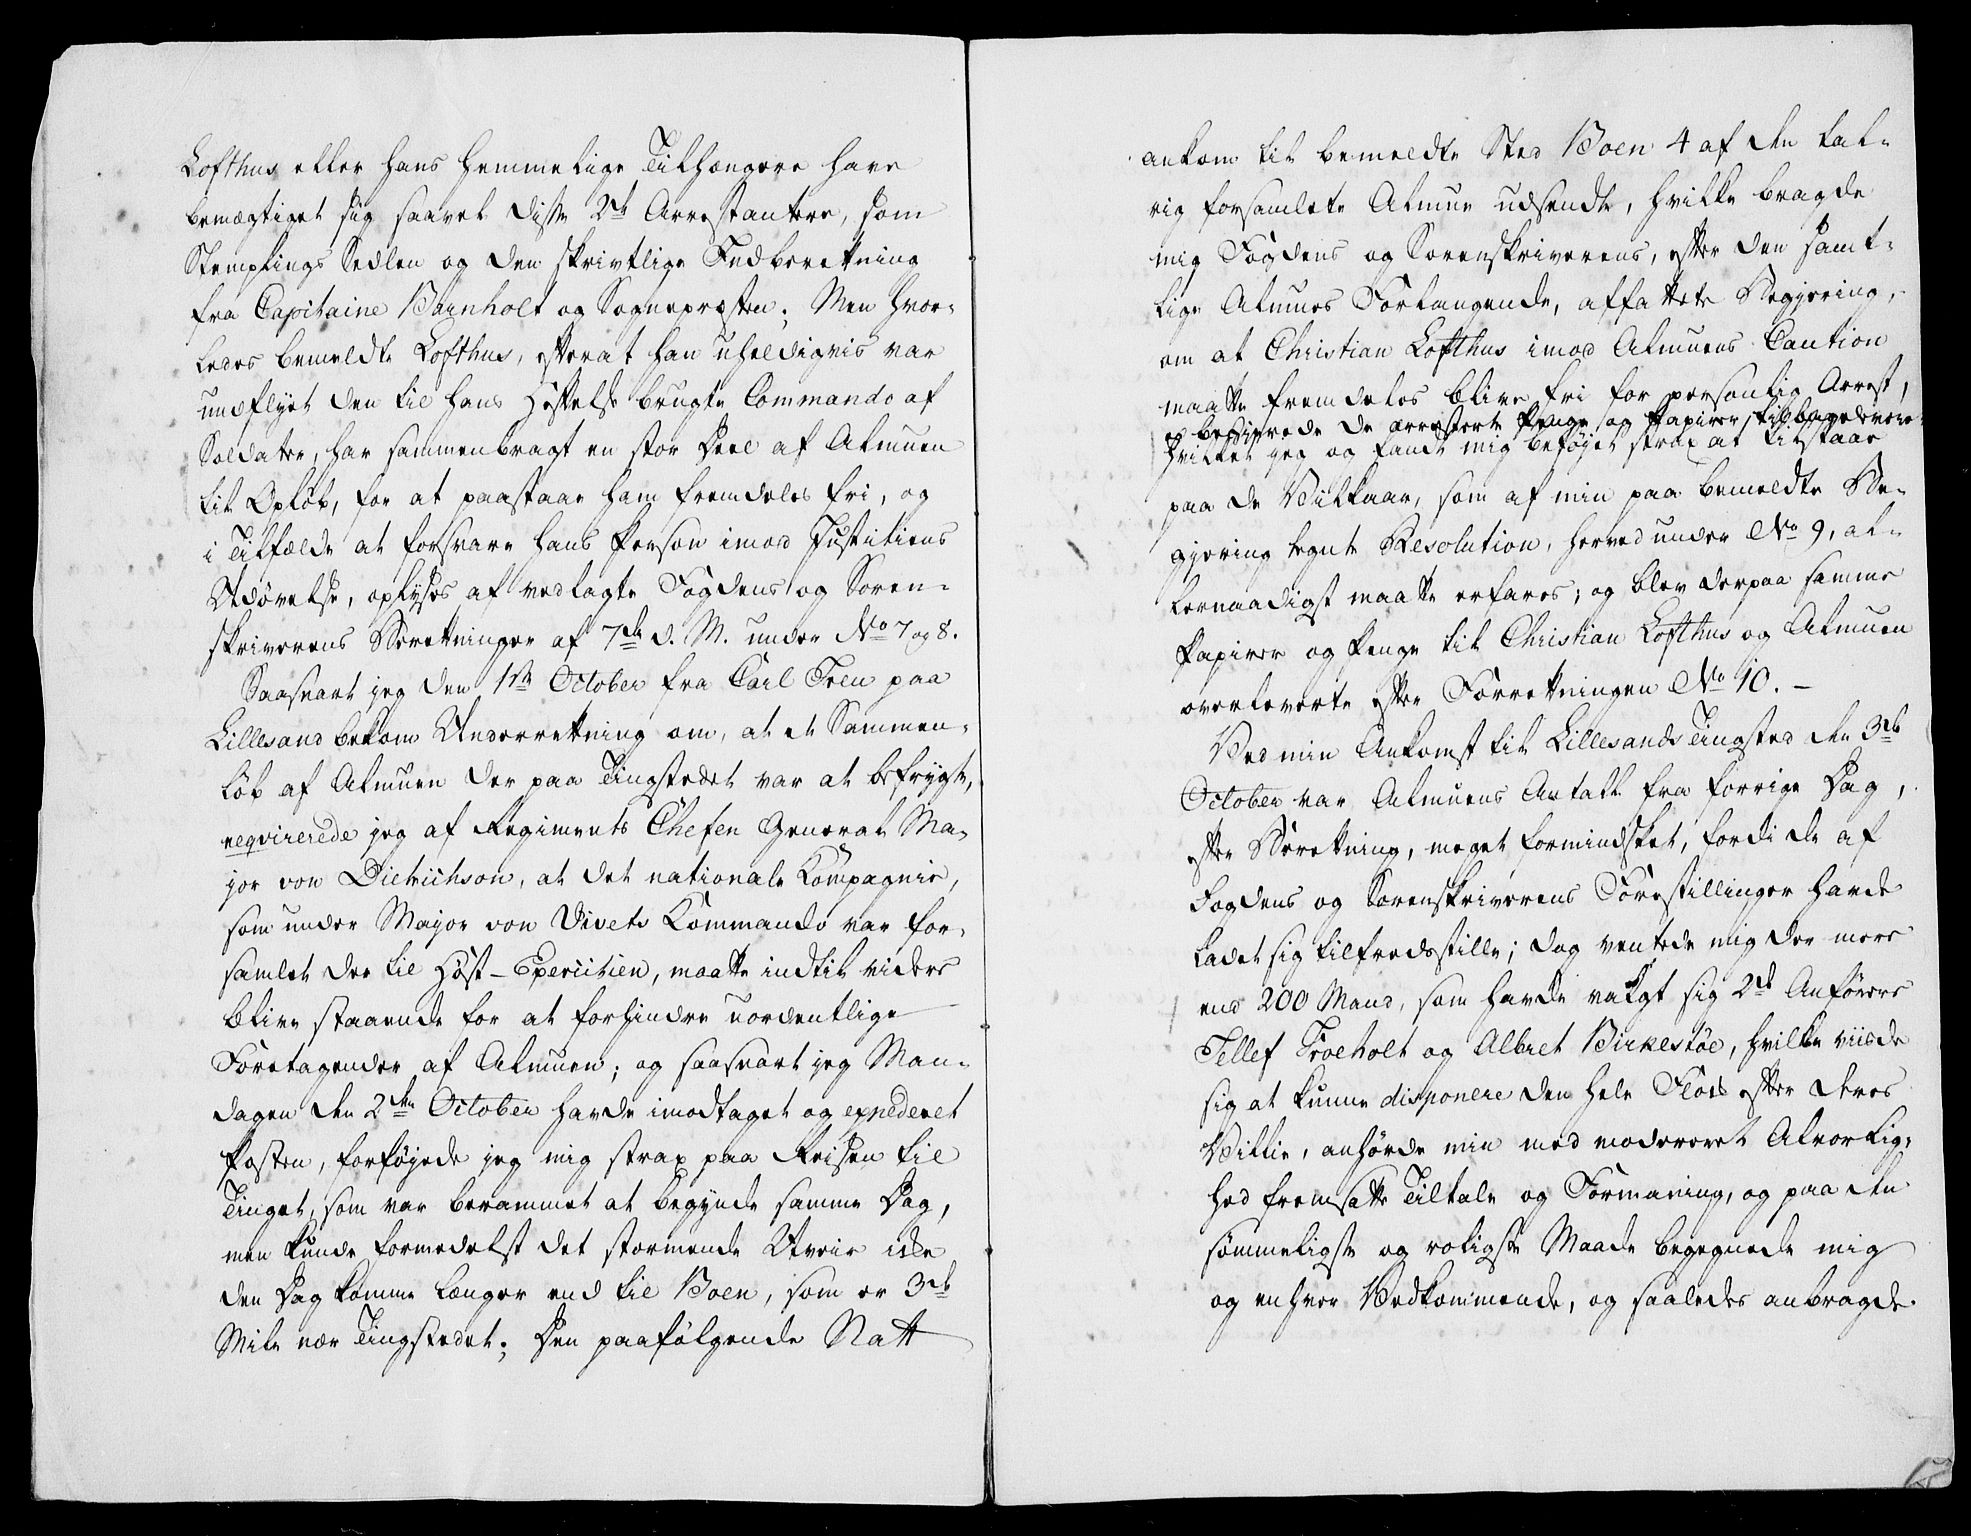 Lofthus eller hans hemmelige Tilhængere have
bemægtiget sig saavel disse 2de Arrestantere, som
Stemplings Sedlen og den skrivtlige Indberetning
fra Capitaine Barnholt og Sognepræsten; Men hvor-
ledes bemeldte Lofthus, efterat han uheldigvis var
undflyet den til hans Hæftelse brugte Commando af
Soldater, har sammenbragt en stor Deel af Almuen
til Opløb, for at paastaae ham fremdeles fri, og
i Tilfælde at forsvare hans Person imod Justitiens
Udøvelse, oplyses af vedlagte Fogdens og Soren-
skriverens Beretninger af 7de d. M. under No 7 og 8.
Saasnart jeg den 1ste October fra Carl Tren paa
Lillesand bekom Underretning om, at et Sammen-
løb af Almuen der paa Tingstedet var at befrygte,
reqvirerede jeg af Regiments Chefen General Ma-
jor von Dietrichson, at det nationale Kompagnie,
som under Major von Divets Kommando var for-
samlet der til Höst-Exercitien, maatte indtil videre
blive staaende for at forhindre uordentlige
Foretagender af Almuen; og saasnart jeg Man-
dagen den 2den October havde imodtaget og expederet
Posten, forføjede jeg mig strax paa Reisen til
Tinget, som var berammet at begynde samme Dag,
men kunde formedelst det stormende Uveir ikke
den Dag komme længer end til Boen, som er 3de
Mile nær Tingstedet; Den paafölgende Natt
ankom til bemeldte Sted Boen 4 af den tal-
rig forsamlete Almue udsendte, hvilke bragde
mig Fogdens og Sorenskriverens, efter den samt-
lige Almues Forlangende, affattete Begjering,
om at Christian Lofthus imod Almuens Caution
maatte fremdeles blive fri for personlig Arrest,
og de arresterte Penge og Papirer tilbageleveres
hvilket jeg og fandt mig beføjet strax at tilstaae
paa de Vilkaar, som af min paa bemeldte Be-
gjering tegnte Resolution, herved under No 9, al-
lernaadigst maatte erfares; og blev derpaa samme
Papirer og Penge til Christian Lofthus og Almuen
overleverte efter Forretningen No 10. –
Ved min Ankomst til Lillesands Tingsted den 3de
October var Almuens Antall fra forrige Dag,
efter Beretning, meget formindsket, fordi de af
Fogdens og Sorenskriverens Forestillinger havde
ladet sig tilfredsstille; dog ventede mig der mere
end 200 Mand, som havde valgt sig 2de Anførere
Tellef Troeholt og Albret Birkestøe, hvilke viiste
sig at kunne disponere den hele Flok efter deres
Villie, anhørde min med modereret Alvorlig-
hed fremsatte Tiltale og Formaning, og paa den
sømmeligste og roligste Maade begegnede mig
og enhver Vedkommende, og saaledes anbragde